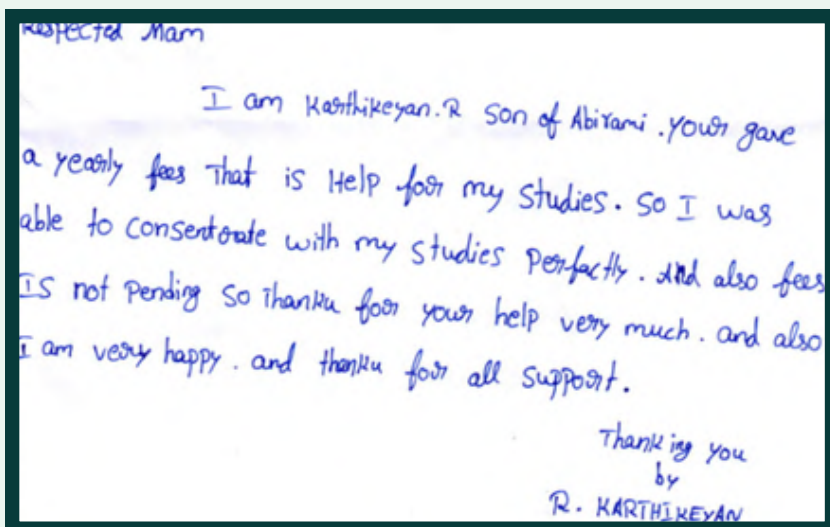 Respected Mam
I am Karthikeyan.R Son of Abirami . your gave
a yearly fees That is Help for my Studies. So I was
able to Consentorate with my Studies Perfactly. And also fees
IS not Pending So Thanku for your help very much. and also
I am very happy. and thanku for all Support.
Thanking you
by
R. KARTHIKEYAN